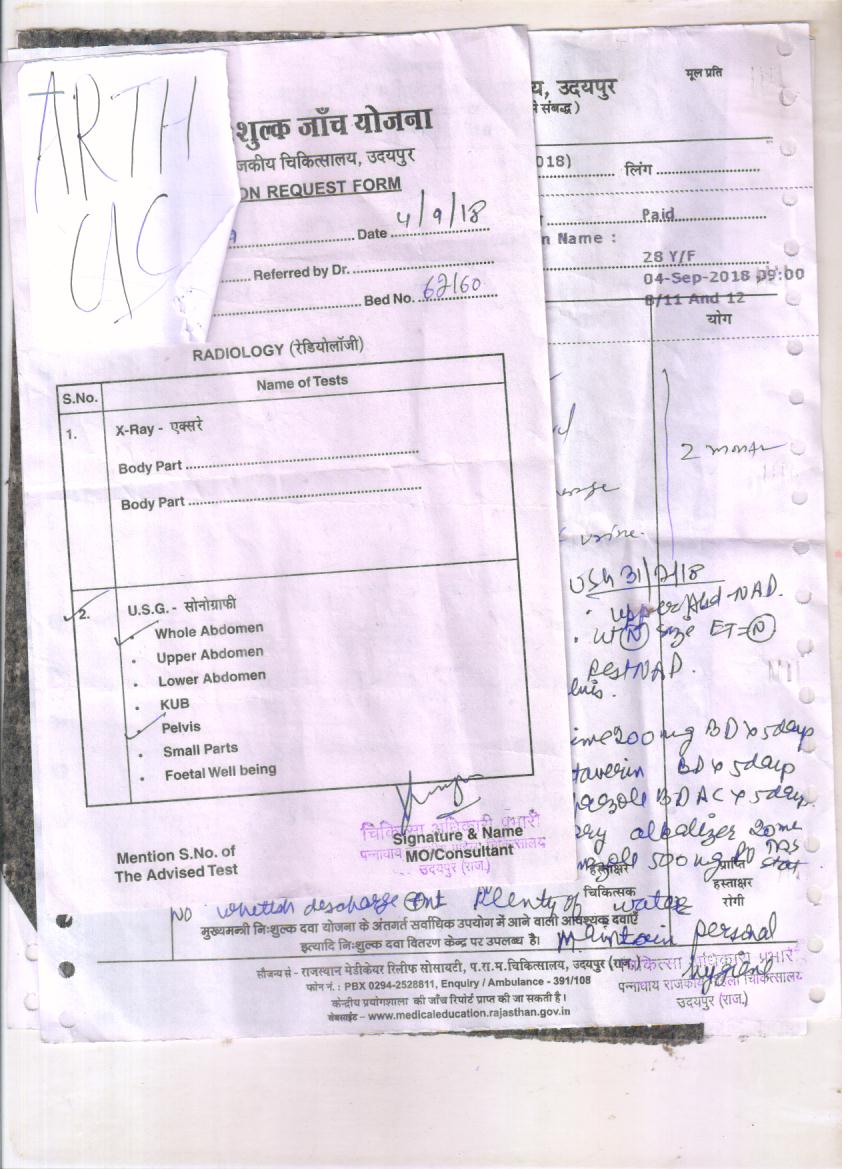 ARTH
UC
शुल्क जाँच योजना
जकीय चिकित्सालय, उदयपुर
ON REQUEST FORM
Date 4/9/18
Referred by Dr.
Bed No. 62/60
RADIOLOGY (रेडियोलॉजी)
S.No. Name of Tests
1. X-Ray - एक्सरे
Body Part
Body Part
2. U.S.G. - सोनोग्राफी
Whole Abdomen
Upper Abdomen
Lower Abdomen
KUB
Pelvis
Small Parts
Foetal Well being
चिकित्सा अधिकारी प्रभारी
Signature & Name
MO/Consultant
पन्नाधाय
उदयपुर (राज.)
Mention S.No. of
The Advised Test
मूल प्रति
य, उदयपुर
संबद्ध)
018) लिंग
Paid
n Name :
28 Y/F
04-Sep-2018 09:00
8/11 And 12
योग
urine.
USG 31/7/18
upper Abd-NAD.
UT (N) Size ET=(N)
Rest NAD.
ime 200 mg BD x 5days
taverin BD x 5days
azole BD AC x 5days
alkalizer 20ml
500 mg
stat
हस्ताक्षर
चिकित्सक
प्राप्ति
हस्ताक्षर
रोगी
NO whitish discharge Plenty of water
मुख्यमन्त्री निःशुल्क दवा योजना के अंतर्गत सर्वाधिक उपयोग में आने वाली आवश्यक दवाएँ
इत्यादि निःशुल्क दवा वितरण केन्द्र पर उपलब्ध है।
Maintain personal
hygiene
सौजन्य से - राजस्थान मेडीकेयर रिलीफ सोसायटी, प.रा.म.चिकित्सालय, उदयपुर (राज.)
फोन नं. : PBX 0294-2528811, Enquiry / Ambulance - 391/108
केन्द्रीय प्रयोगशाला की जाँच रिपोर्ट प्राप्त की जा सकती है।
वेबसाईट – www.medicaleducation.rajasthan.gov.in
चिकित्सा अधिकारी प्रभारी
पन्नाधाय राजकीय महिला चिकित्सालय
उदयपुर (राज.)